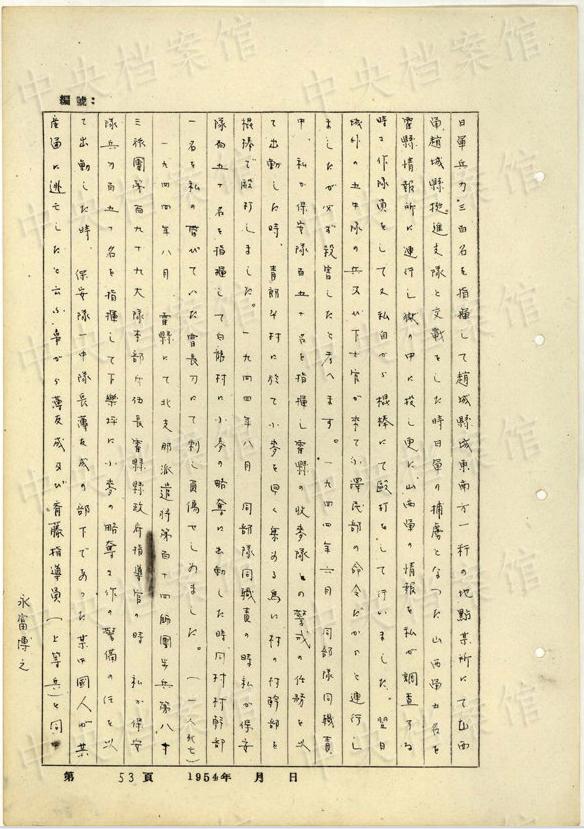 編號：
日軍兵力三百名を指揮して趙城縣城東南方一行の地點某所にて山西
軍趙城縣挺進支隊と交戰をした時日軍の捕虜となつた山西軍五名を
霍縣情報所に連行し獄の中に投じ更に山西軍の情報を私が調査する
時工作隊員をして又私自から棍棒にて毆打をして行いました。翌日
城外の五中隊の兵又は下士官が来て小澤氏部の命令だからと連行し
ましたが必ず殺害したと考へます。一九四四年六月 同部隊同職責
中、私が保安隊百五十名を指揮し霍縣の收麥隊の警戒の任務を以
て出動した時、青郎坪村に於て小麥を 集める爲に村の村幹部を
棍棒で毆打しました。一九四四年八月 同部隊同職責の時私が保安
隊百五十名を指揮して白龍村に小麥の略奪に出動した時同村村幹部
一名を私の 軍刀にて刺し負傷せしめました。
一九四四年八月 霍縣にて北支那派遣軍第百十四師團步兵第八十
三旅團第百九十九大隊本部 伍長霍縣縣政府指導官の時 私が保安
隊兵力百五十名を指揮して下樂坪に小麥の略奪工作の警備の任を以
て出動した時、保安隊一中隊長薄友成の部下であつた某中國人が共
産軍に逃亡したと云ふ事から薄友成及び齊藤指導員（上等兵）と同
永富博之
第 53 頁 1954年 月 日
中央档案馆